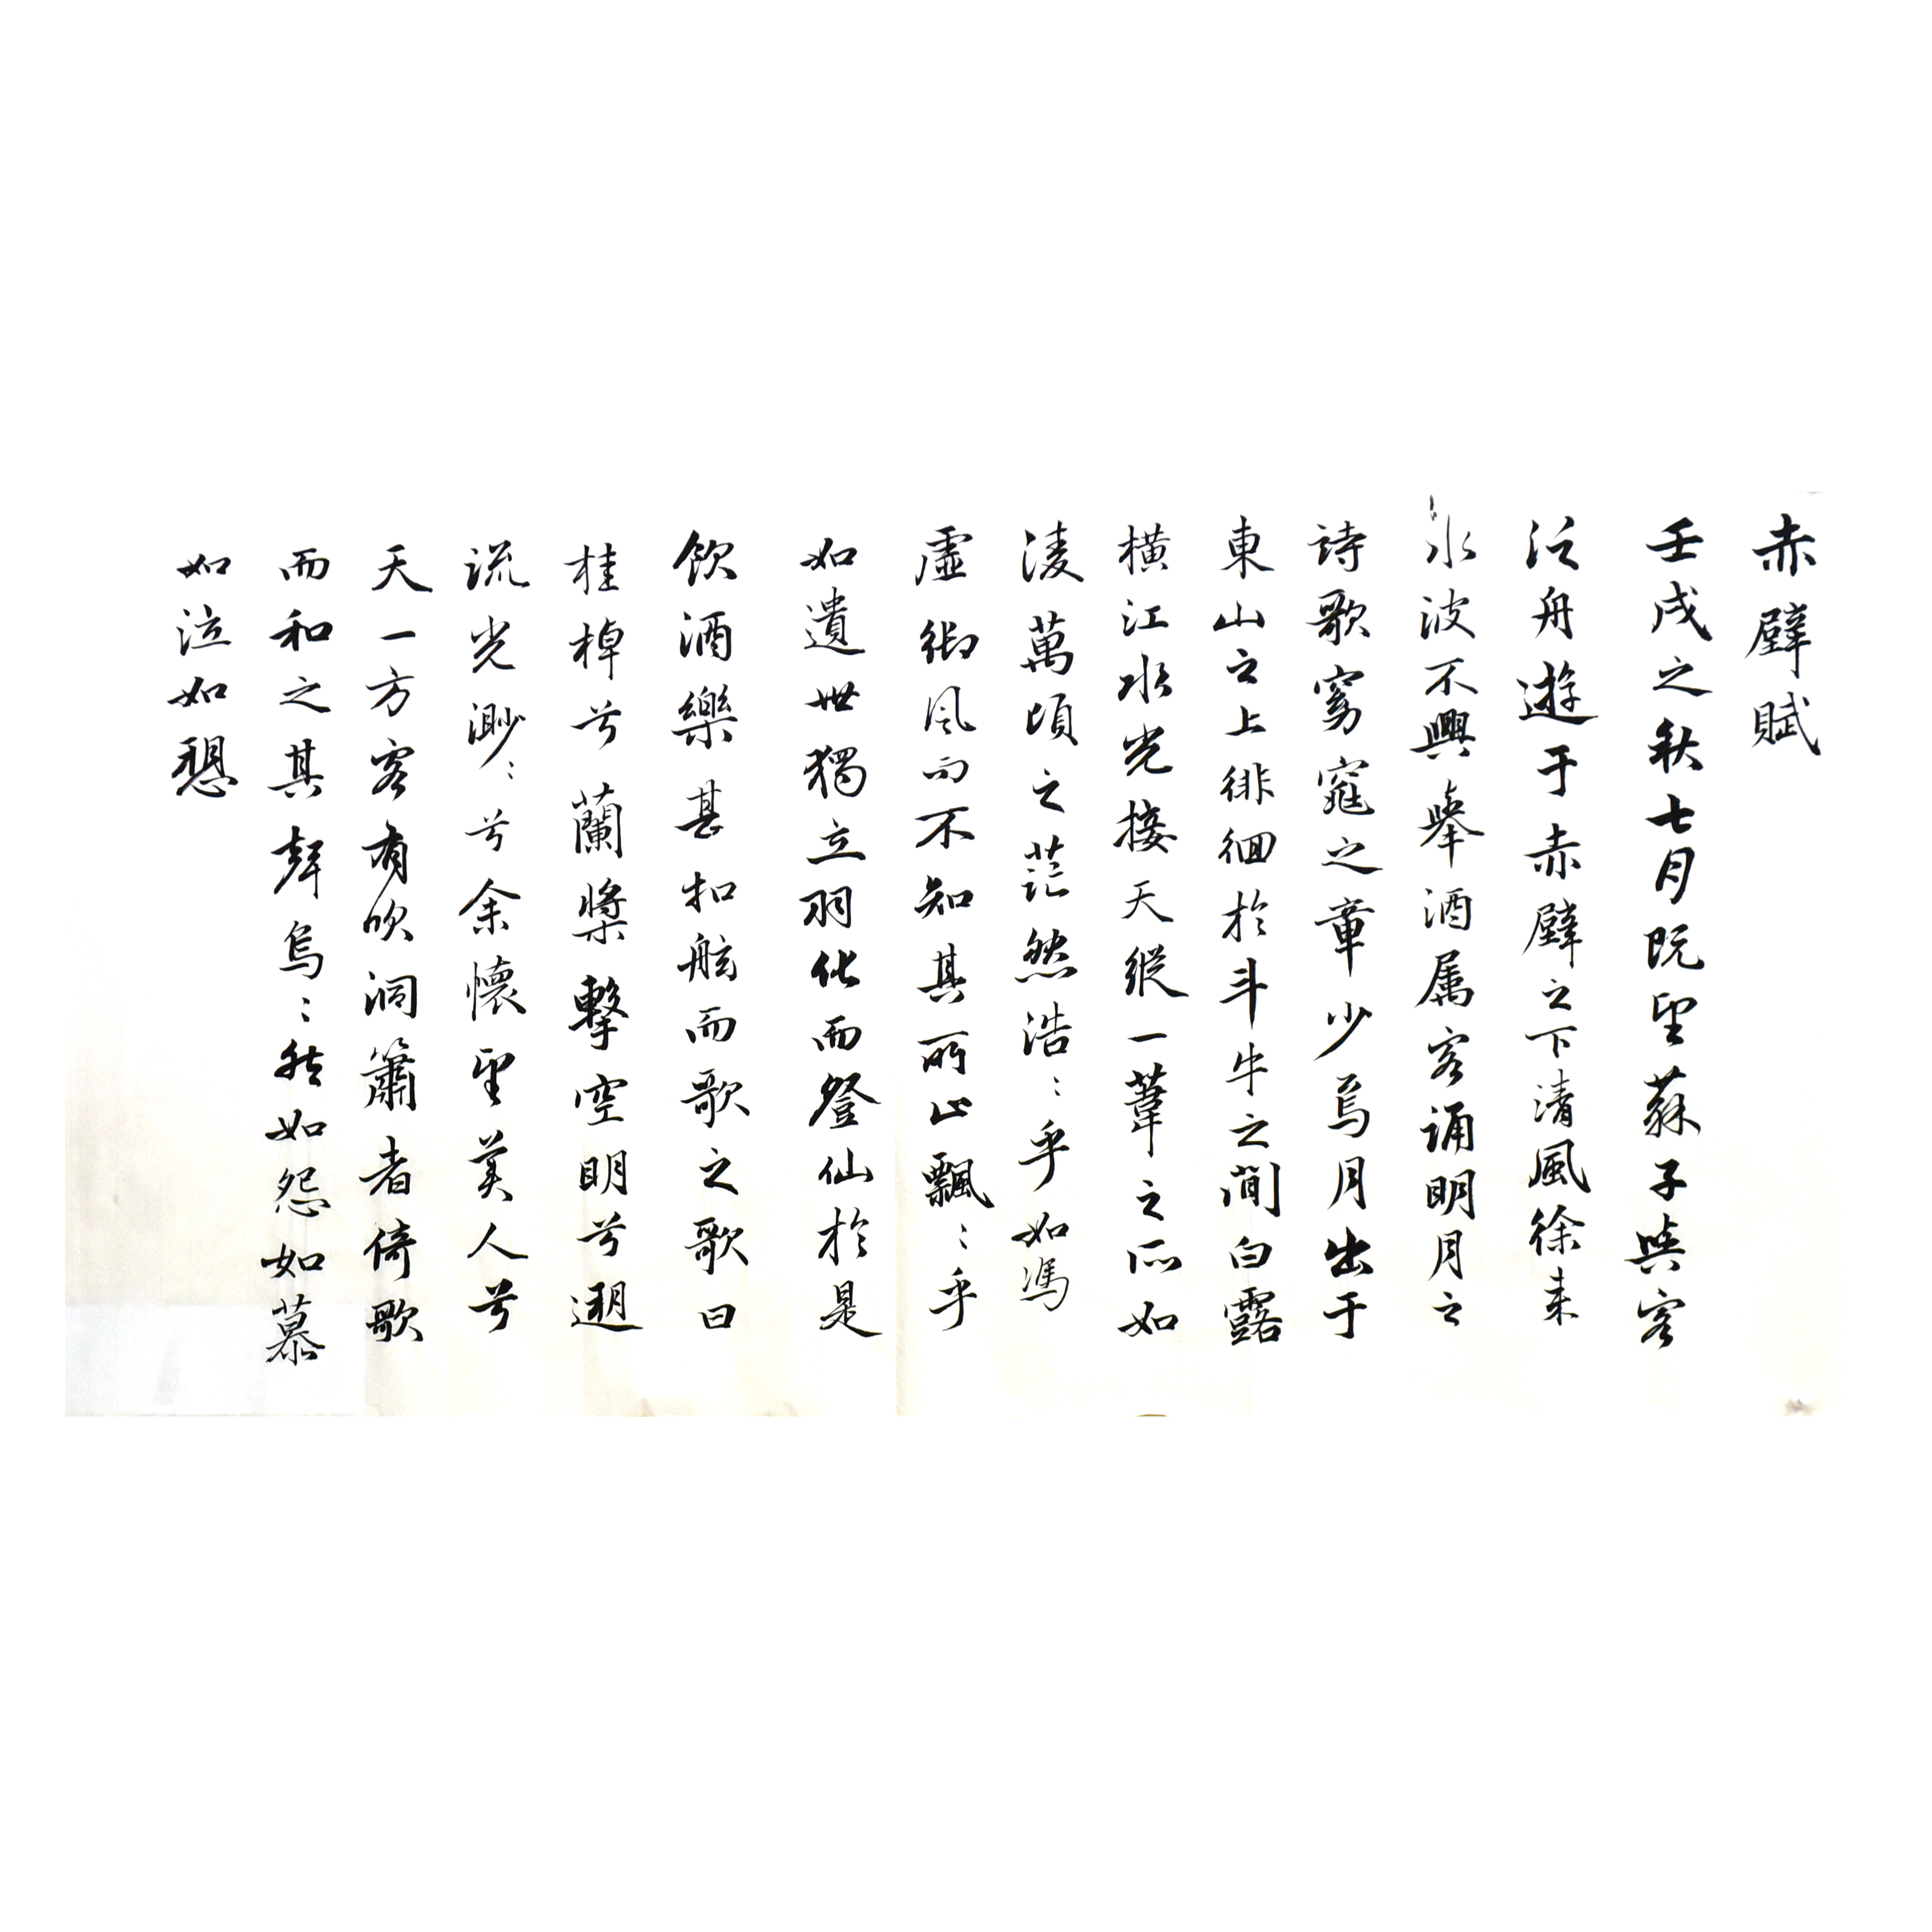 赤壁賦
壬戌之秋七月既望蘇子與客
泛舟遊于赤壁之下清風徐来
水波不興舉酒属客誦明月之
詩歌窈窕之章少焉月出于
東山之上徘徊於斗牛之間白露
橫江水光接天縱一葦之所如
淩萬頃之茫然浩〻乎如馮
虛御風而不知其所止飄〻乎
如遺世獨立羽化而登仙於是
飲酒樂甚扣舷而歌之歌曰
桂棹兮蘭槳擊空明兮遡
流光渺〻兮余懷望美人兮
天一方客有吹洞簫者倚歌
而和之其聲烏〻然如怨如慕
如泣如愬